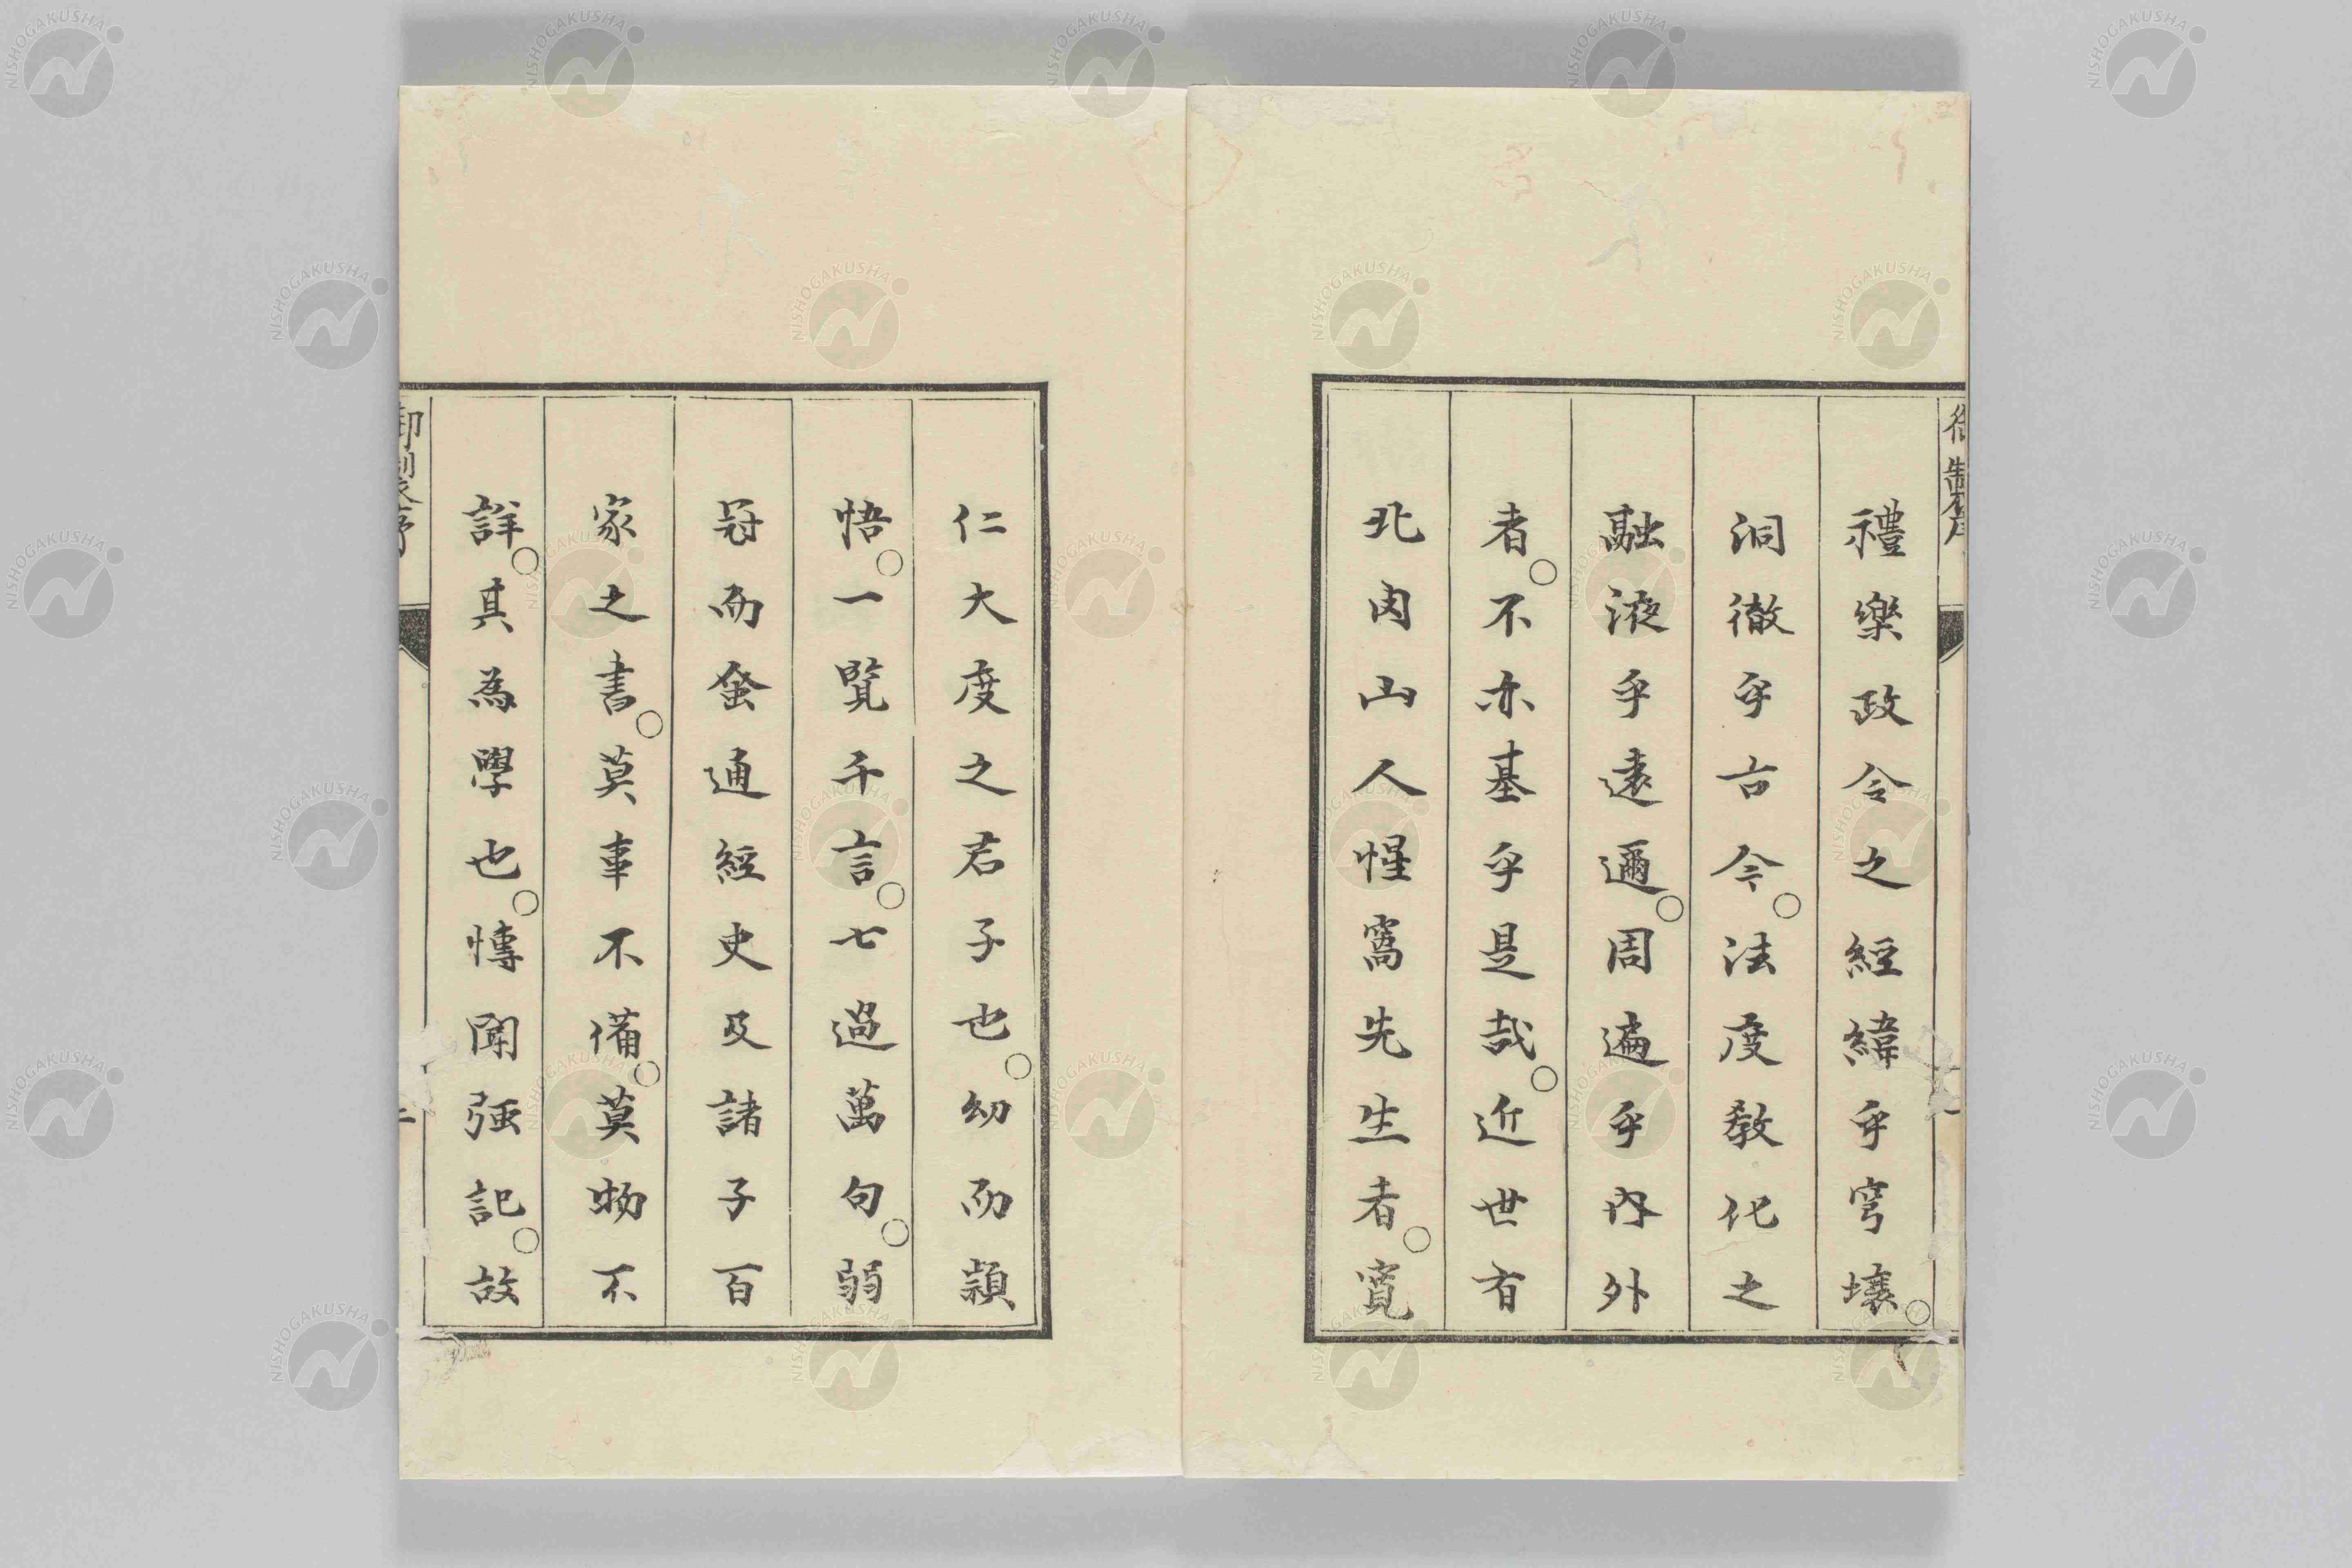 禮樂政令之經緯乎穹壤○
洞徹乎古今○法度教化之
融液乎遠邇○周遍乎內外
者○不亦基乎是哉○近世有
北肉山人惺窩先生者○寬
仁大度之君子也○幼而穎
悟○一覧千言○七過萬句○弱
冠而夤通經史及諸子百
家之書○莫事不備○莫物不
詳○其為學也○博聞强記○故
御製序
NISHOGAKUSHA